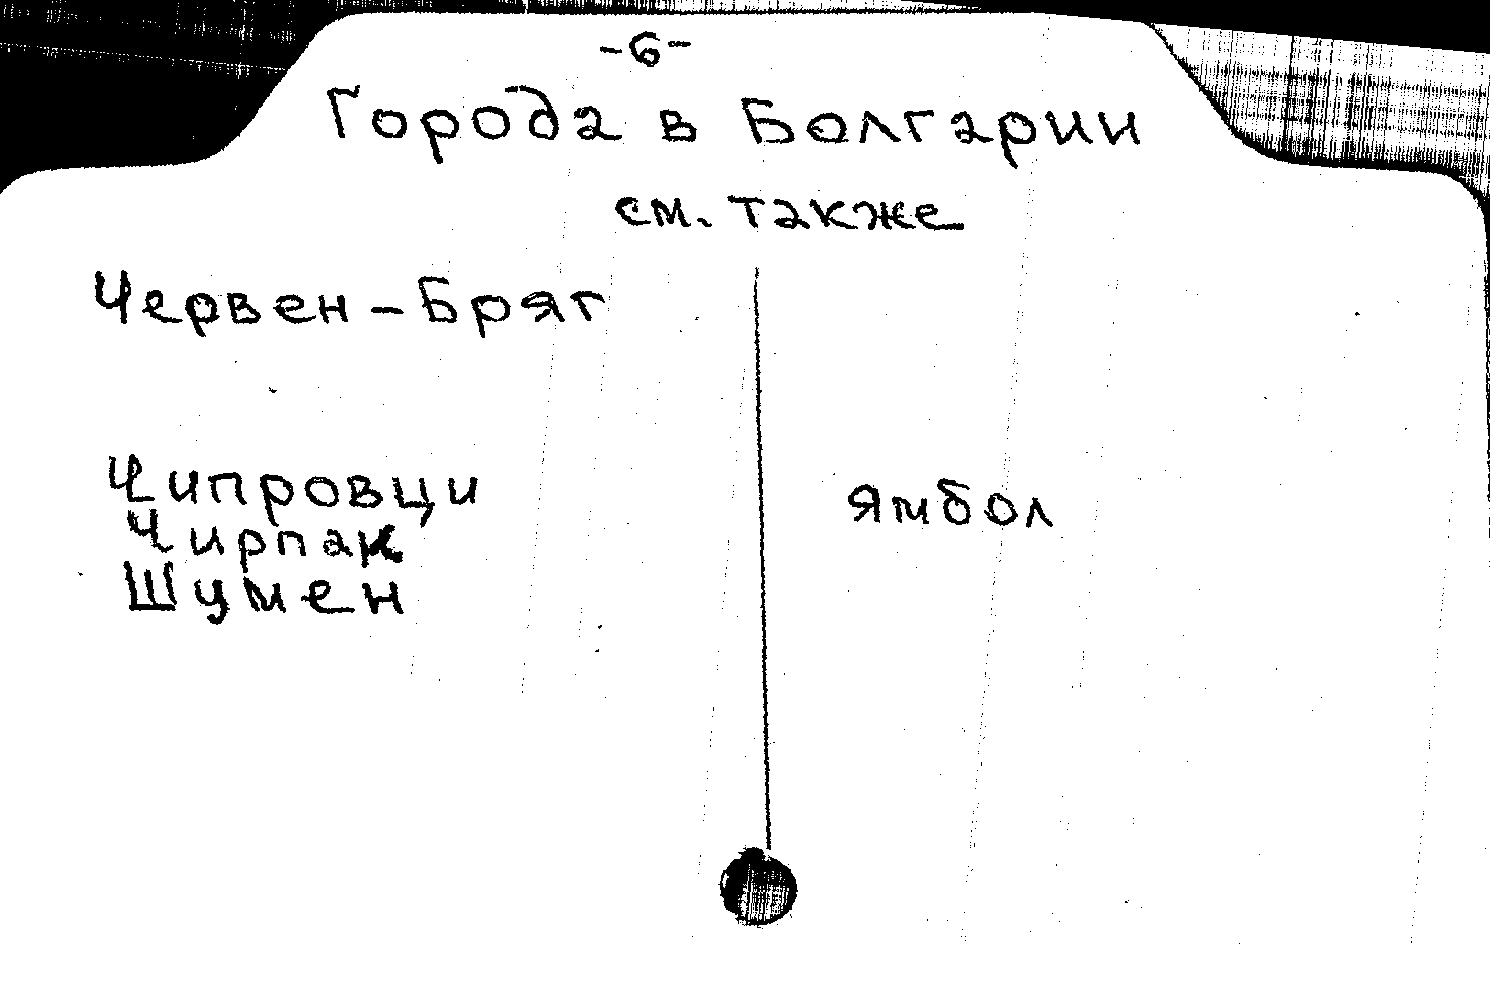 -6-
Города в Болгарии
см. также
Червен-Бряг
Чипровци
Чирпак
Шумен
Ямбол